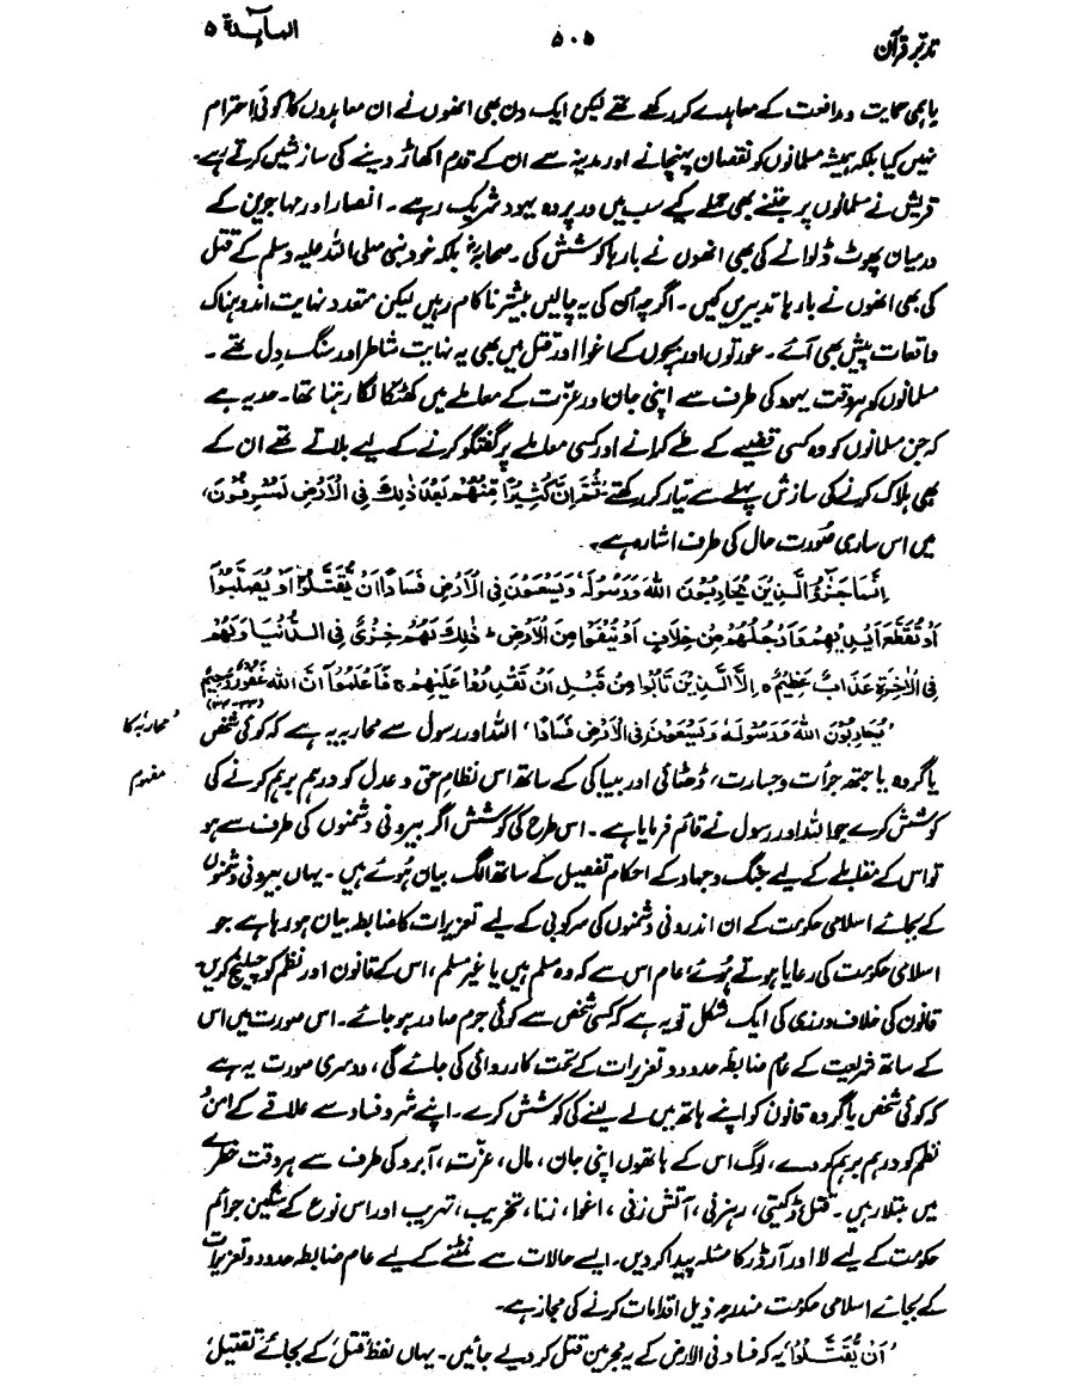 تدبر قرآن
۵۰۵
المآیدۃ ۵
باہمی حمایت و مدافعت کے معاہدے کر رکھے تھے لیکن ایک دن بھی انھوں نے ان معاہدوں کا کوئی احترام
نہیں کیا بلکہ ہمیشہ مسلمانوں کو نقصان پہنچانے اور مدینہ سے ان کے قدم اکھاڑ دینے کی سازشیں کرتے رہے۔
قریش نے مسلمانوں پر جتنے بھی حملے کیے سب میں در پردہ یہود شریک رہے۔ انصار اور مہاجرین کے
درمیان پھوٹ ڈلوانے کی بھی انھوں نے بارہا کوشش کی۔ صحابہؓ بلکہ خود نبی صلی اللہ علیہ وسلم کے قتل
کی بھی انھوں نے بارہا تدبیریں کیں۔ اگرچہ اُن کی یہ چالیں بیشتر ناکام رہیں لیکن متعدد نہایت اندوہناک
واقعات پیش بھی آئے۔ عورتوں اور بچوں کے اغوا اور قتل میں بھی یہ نہایت شاطر اور سنگ دِل تھے۔
مسلمانوں کو ہر وقت یہود کی طرف سے اپنی جان اور عزّت کے معاملے میں کھٹکا لگا رہتا تھا۔ حد یہ ہے
کہ جن مسلمانوں کو وہ کسی قضیے کے طے کرانے اور کسی معاملے پر گفتگو کرنے کے لیے بلاتے تھے ان کے
بھی ہلاک کرنے کی سازش پہلے سے تیار کر رکھتے 'ثُمَّ اِنَّ كَثِيْرًا مِّنْهُمْ بَعْدَ ذٰلِكَ فِى الْاَرْضِ لَمُسْرِفُوْنَ'
میں اس ساری صُورت حال کی طرف اشارہ ہے۔
اِنَّمَا جَزٰٓؤُا الَّذِيْنَ يُحَارِبُوْنَ اللهَ وَرَسُوْلَهٗ وَيَسْعَوْنَ فِى الْاَرْضِ فَسَادًا اَنْ يُّقَتَّلُوْٓا اَوْ يُصَلَّبُوْٓا
اَوْ تُقَطَّعَ اَيْدِيْهِمْ وَاَرْجُلُهُمْ مِّنْ خِلَافٍ اَوْ يُنْفَوْا مِنَ الْاَرْضِ ؕ ذٰلِكَ لَهُمْ خِزْىٌ فِى الدُّنْيَا وَلَهُمْ
فِى الْاٰخِرَةِ عَذَابٌ عَظِيْمٌ ہ اِلَّا الَّذِيْنَ تَابُوْا مِنْ قَبْلِ اَنْ تَقْدِرُوْا عَلَيْهِمْ ج فَاعْلَمُوْٓا اَنَّ اللهَ غَفُوْرٌ رَّحِيْمٌ
(۳۳-۳۴)
'يُحَارِبُوْنَ اللهَ وَرَسُوْلَهٗ وَيَسْعَوْنَ فِى الْاَرْضِ فَسَادًا' اللہ اور رسول سے محاربہ یہ ہے کہ کوئی شخص
'محاربہ' کا
یا گروہ یا جتھہ جرأت و جسارت، ڈھٹائی اور بیباکی کے ساتھ اس نظامِ حق و عدل کو درہم برہم کرنے کی
مفہوم
کوشش کرے جو اللہ اور رسول نے قائم فرمایا ہے۔ اس طرح کی کوشش اگر بیرونی دشمنوں کی طرف سے ہو
تو اس کے مقابلے کے لیے جنگ و جہاد کے احکام تفصیل کے ساتھ الگ بیان ہُوئے ہیں۔ یہاں بیرونی دشمنوں
کے بجائے اسلامی حکومت کے ان اندرونی دشمنوں کی سرکوبی کے لیے تعزیرات کا ضابطہ بیان ہو رہا ہے جو
اسلامی حکومت کی رعایا ہوتے ہُوئے، عام اس سے کہ وہ مسلم ہیں یا غیر مسلم، اس کے قانون اور نظم کو چیلنج کریں۔
قانون کی خلاف ورزی کی ایک شکل تو یہ ہے کہ کسی شخص سے کوئی جرم صادر ہو جائے۔ اس صورت میں اس
کے ساتھ شریعت کے عام ضابطۂ حدود و تعزیرات کے تحت کارروائی کی جائے گی، دوسری صورت یہ ہے
کہ کوئی شخص یا گروہ قانون کو اپنے ہاتھ میں لے لینے کی کوشش کرے۔ اپنے شر و فساد سے علاقے کے امن و
نظم کو درہم برہم کر دے، لوگ اس کے ہاتھوں اپنی جان، مال، عزّت، آبرو کی طرف سے ہر وقت خطرے
میں مبتلا رہیں۔ قتل، ڈکیتی، رہزنی، آتش زنی، اغوا، زنا، تخریب، تہریب اور اس نوع کے سنگین جرائم
حکومت کے لیے لا اور آرڈر کا مسئلہ پیدا کر دیں۔ ایسے حالات سے نمٹنے کے لیے عام ضابطہ حدود و تعزیرات
کے بجائے اسلامی حکومت مندرجہ ذیل اقدامات کرنے کی مجاز ہے۔
'اَنْ يُّقَتَّلُوْٓا' یہ کہ فساد فی الارض کے یہ مجرمین قتل کر دیے جائیں۔ یہاں لفظ 'قتل' کے بجائے 'تقتیل'